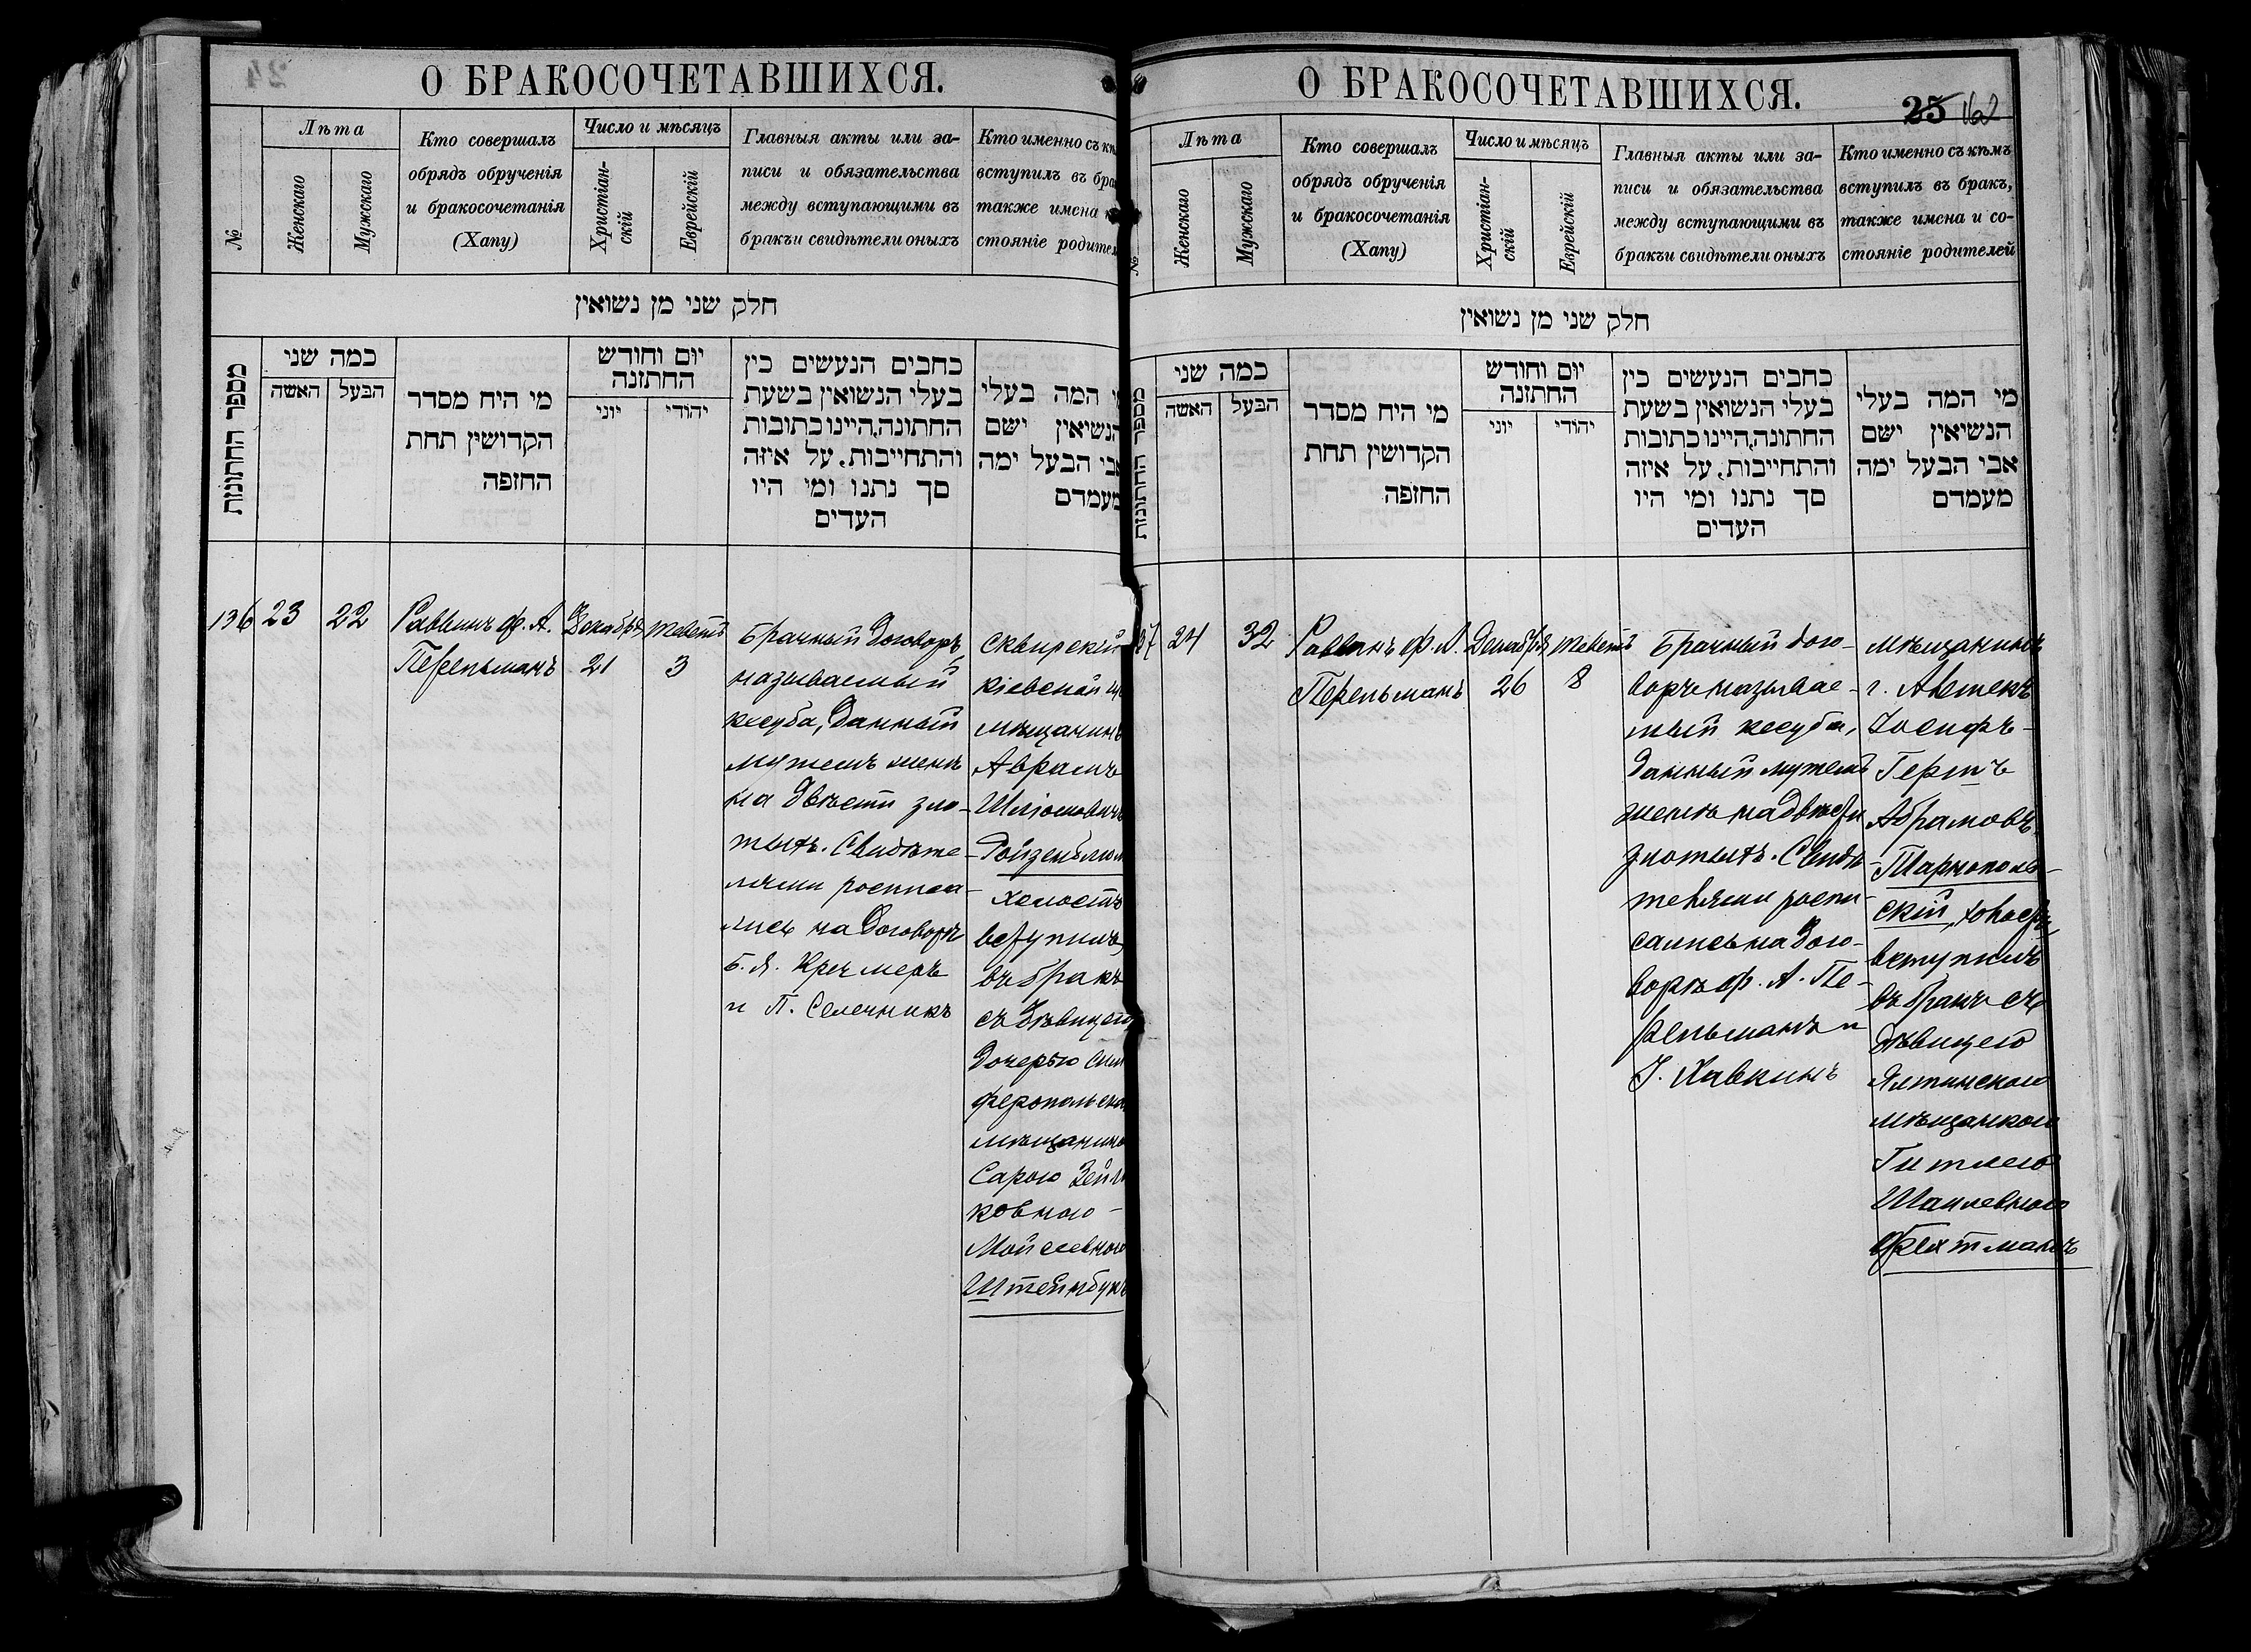 О БРАКОСОЧЕТАВШИХСЯ.
№
Лѣта
Женскаго
Мужскаго
Кто совершалъ
обрядъ обрученія
и бракосочетанія
(Хапу)
Число и мѣсяцъ
Христіан-
скій
Еврейскій
Главныя акты или за-
писи и обязательства
между вступающими въ
бракъи свидѣтели оныхъ
Кто именно съ
вступилъ въ
также имена
стояніе
חלק שני מן נשואין
מספר החתונות
כמה שני
האשה
הבעל
מי היח מסדר
הקדושין תחת
החופה
יום וחודש
החתונה
יוני
יהודי
כחבים הנעשים כין
בעלי הנשואין בשעת
החתונה,היינו כתובות
והתחייבות, על איזה
סך נתנו ומי היו
העדים
המה בעלי
הנשיאין ישם
אבי הבעל ימה
מעמדם
136
23
22
Раввинъ Ф. А.
Перельманъ
Декабря
21
Теветъ
3
Брачный договоръ,
называемый
кесуба, данный
мужемъ женѣ
на двѣсти зло-
тыхъ. Свидѣте-
лями росписа-
лись на договорѣ
Б. Я. Кремеръ
и П. Селечникъ
Сквирскій
Кіевской
мѣщанинъ
Аврамъ
Шліомовичъ
Ройзенблюм
холостъ
вступилъ
въ бракъ
съ дѣвицею
дочерью Сим
феропольска
мѣщанина
Сарою Зейли
ковною-
Мойсеевною
Штейнбукъ
О БРАКОСОЧЕТАВШИХСЯ.
25 162
№
Лѣта
Женскаго
Мужскаго
Кто совершалъ
обрядъ обрученія
и бракосочетанія
(Хапу)
Число и мѣсяцъ
Христіан-
скій
Еврейскій
Главныя акты или за-
писи и обязательства
между вступающими въ
бракъи свидѣтели оныхъ
Кто именно съ кѣмъ
вступилъ въ бракъ,
также имена и со-
стояніе родителей
חלק שני מן נשואין
מספר החתונות
כמה שני
האשה
הבעל
מי היח מסדר
הקדושין תחת
החופה
יום וחודש
החתונה
יוני
יהודי
כחבים הנעשים כין
בעלי הנשואין בשעת
החתונה,היינו כתובות
והתחייבות, על איזה
סך נתנו ומי היו
העדים
מי המה בעלי
הנשיאין ישם
אבי הבעל ימה
מעמדם
37
24
32
Раввинъ Ф. А.
Перельманъ
Декабря
26
Теветъ
8
Брачный дого-
воръ называе-
мый кесуба,
данный мужемъ
женѣ на двѣсти
злотыхъ. Свидѣ-
телями роспи-
сались на дого-
ворѣ Ф. А. Пе-
рельманъ и
I. Хавкинъ
Мѣщанинъ
г. Алешекъ
Іосифъ-
Гершъ
Абрамовъ
-Тарнополь-
скій, холостъ,
вступилъ
въ бракъ съ
дѣвицею
Ялтинскою
мѣщанкою
Гитлею
Шаилевною
Фрехтманъ